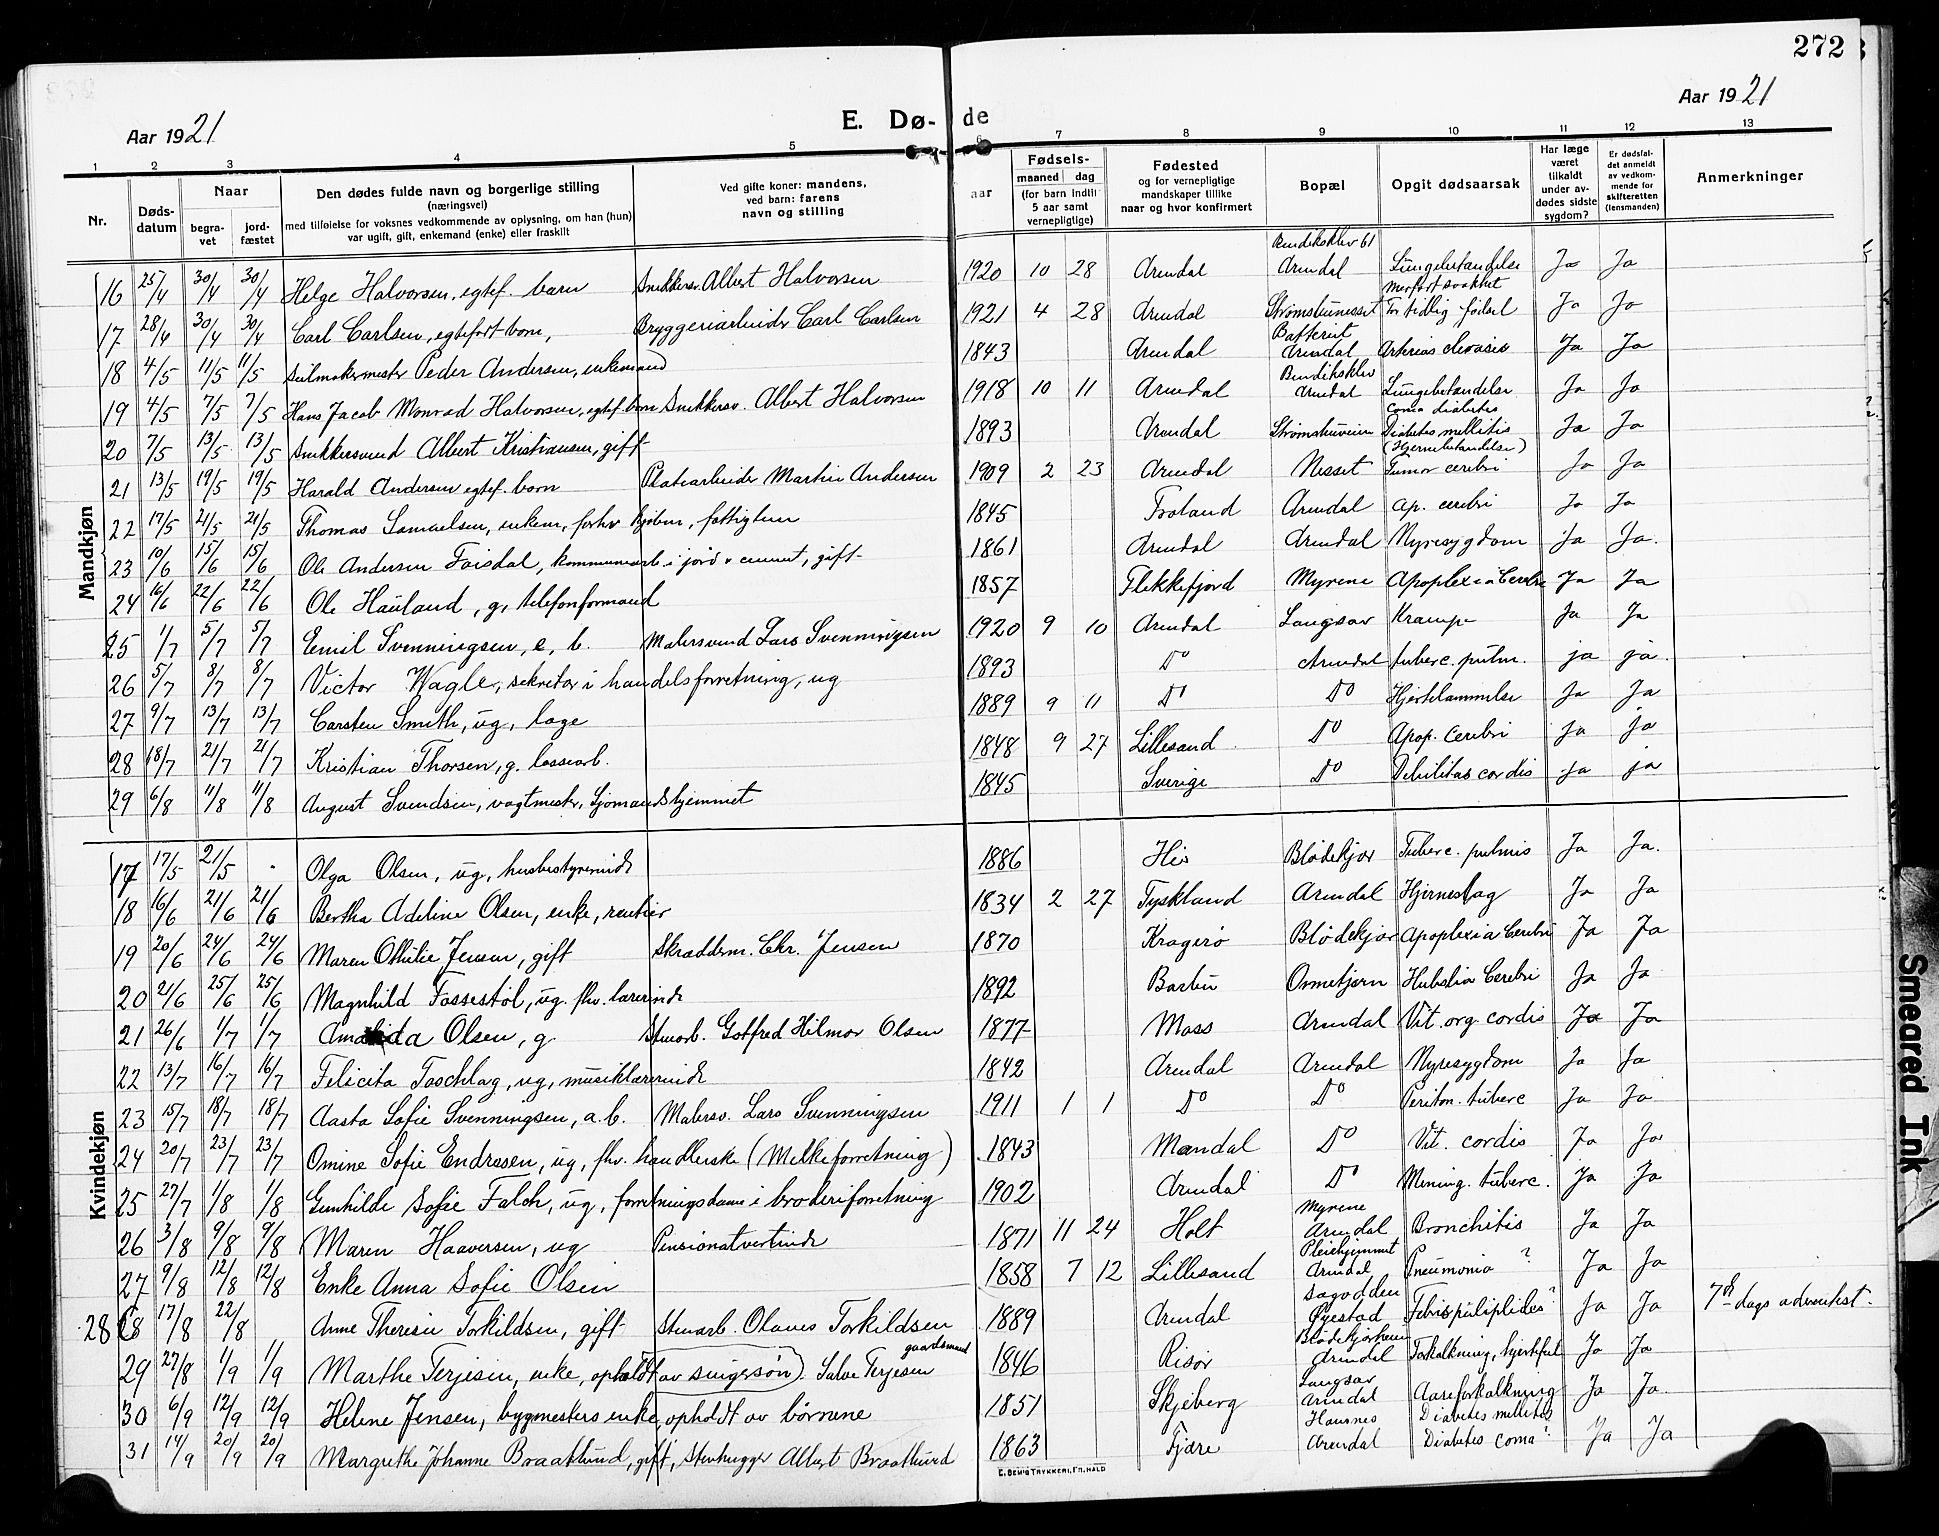 272
Aar 1921
E. Dø-de
Aar 1921
1 2 3 4 5 6 7 8 9 10 11 12 13
Nr.
Døds-datum
Naar
begra-vet
jord-fæstet
Den dødes fulde navn og borgerlige stilling
(næringsvei)
med tilføielse for voksnes vedkommende av oplysning, om han (hun)
var ugift, gift, enkemand (enke) eller fraskilt
Ved gifte koner: mandens,
ved barn: farens
navn og stilling
aar
Fødsels-
maaned dag
(for barn indtil
5 aar samt
vernepligtige)
Fødested
og for vernepligtige
mandskaper tillike
naar og hvor konfirmert
Bopæl
Opgit dødsaarsak
Har læge
været
tilkaldt
under av-
dødes sidste
sygdom?
Er dødsfal-
det anmeldt
av vedkom-
mende for
skifteretten
(lensmanden)
Anmerkninger
Mandkjøn
Bendiksklev 61
16 25/4 30/4 30/4 Helge Halvorsen, egtef. barn Snekkersv. Albert Halvorsen 1920 10 28 Arendal Arendal Lungebetændelse Ja Ja
Medfødt svakhet
17 28/4 30/4 30/4 Carl Carlsen, egtefødt barn, Bryggeriarbeider Carl Carlsen 1921 4 28 Arendal Strømsbunesset For tidlig fødsel Ja Ja
Batteriet
18 4/5 11/5 11/5 Seilmakermester Peder Andersen, enkemand 1843 Arendal Arendal Ja Ja
Bendiksklev
19 4/5 7/5 7/5 Hans Jacob Monrad Halvorsen, egtef. barn Snekkersv. Albert Halvorsen 1918 10 11 Arendal Arendal Lungebetændelse Ja Ja
Coma diabetes
20 7/5 13/5 13/5 Snekkersvend Albert Kristiansen, gift 1893 Arendal Strømsbuveien Diabetes mellitis Ja Ja
(Hjernebetændelse)
21 13/5 19/5 19/5 Harald Andersen egtef. barn Platearbeider Martin Andersen 1909 2 23 Arendal Nesset Tumor cerebri Ja Ja
22 17/5 21/5 21/5 Thomas Samuelsen, enkem, forhv kjøbm, fattiglem 1845 Froland Arendal Ap. cerebri Ja Ja
23 10/6 15/6 15/6 Ole Andersen Foisdal, kommunearb. i jord & cement, gift 1861 Arendal Arendal Nyresygdom Ja Ja.
24 16/6 22/6 22/6 Ole Hauland, g, telefonformand 1857 Flekkefjord Myrene Apoplexia Cerebri Ja Ja
25 1/7 5/7 5/7 Emil Svenningsen, e. b. Malersvend Lars Svenningsen 1920 9 10 Arendal Langsæv Krampe Ja Ja
26 5/7 8/7 8/7 Victor Wagle, sekretær i handelsforretning, ug 1893 Do Arendal tuberc. pulm. ja ja.
27 9/7 13/7 13/7 Carsten Smith, ug, læge 1889 9 11 Do Do Hjertelammelse Ja Ja
28 18/7 21/7 21/7 Kristian Thorsen, g. lossearb. 1848 9 27 Lillesand Do Apop. Cerebri Ja ja
29 6/8 11/8 11/8 August Svendsen, vagtmester, Sjømandshjemmet 1845 Sverige Do Debilitas cordis ja ja
Kvindekjøn
17 17/5 21/5 - Olga Olsen, ug, husbestyrerinde 1886 His Blødekjær Tuberc. pulmis Ja Ja.
18 16/6 21/6 21/6 Bertha Adeline Olsen, enke, rentier 1834 2 27 Tyskland Arendal Hjerneslag Ja Ja
19 20/6 24/6 24/6 Maren Othilie Jensen, gift Skræderm. Chr. Jensen 1870 Kragerø Blødekjær Apoplexia Cerebri Ja Ja
20 21/6 25/6 25/6 Magnhild Fossestøl, ug. fhv. lærerinde 1892 Barbu Ormetjern Cerebri Ja Ja
21 26/6 1/7 1/7 Olsen, g Stuearb. Gotfred Hilmar Olsen 1877 Moss Arendal Vit. org. cordis Ja Ja
22 13/7 16/7 16/7 Felicita Taschlag, ug, musiklærerinde 1842 Arendal Arendal Nyresygdom Ja Ja
23 15/7 18/7 18/7 Aasta Sofie Svenningsen, a. b. Malersv. Lars Svenningsen 1911 1 1 Do Do Periton. tuberc Ja Ja
24 20/7 23/7 23/7 Omine Sofie Endresen, ug, fhv. handlerske (Melkeforretning) 1843 Mandal Do Vit. cordis Ja Ja
25 27/7 1/8 1/8 Gunhilde Sofie Falch, ug, forretningsdame i broderiforretning 1902 Arendal Do Mening. tuberc. Ja Ja
Myrene
26 3/8 9/8 9/8 Maren Haaversen, ug Pensionatvertinde 1871 11 24 Holt Arendal Bronchitis Ja Ja
Pleiehjemmet
27 9/8 12/8 12/8 Enke Anna Sofie Olsen 1858 7 12 Lillesand Arendal Pneumonia ? Ja Ja
Sagodden
28 17/8 22/8 " Anne Theresie Torkildsen, gift Stuearb. Olaves Torkildsen 1889 Arendal Øyestad ? Ja Ja 7de dags adventist.
gaardsmand Blødekjærheien
29 27/8 1/9 1/9 Marthe Terjesen, enke, opholdt av svigersøn). Salve Terjesen 1846 Risør Arendal Forkalkning, hjertefeil Ja Ja
Langsæv
30 6/9 12/9 12/9 Helene Jensen, bygmesters enke, opholdt av børnene 1851 Skjeberg Arendal Aareforkalkning Ja Ja.
Havsnes Diabetes mellites
31 14/9 20/9 20/9 Margrethe Johanne Braatlund, gift, Stenhugger Albert Braatlund 1863 Fjære Arendal Diabetes coma? Ja Ja
E. Sem's Trykkeri, Fr.hald
Smeared Ink